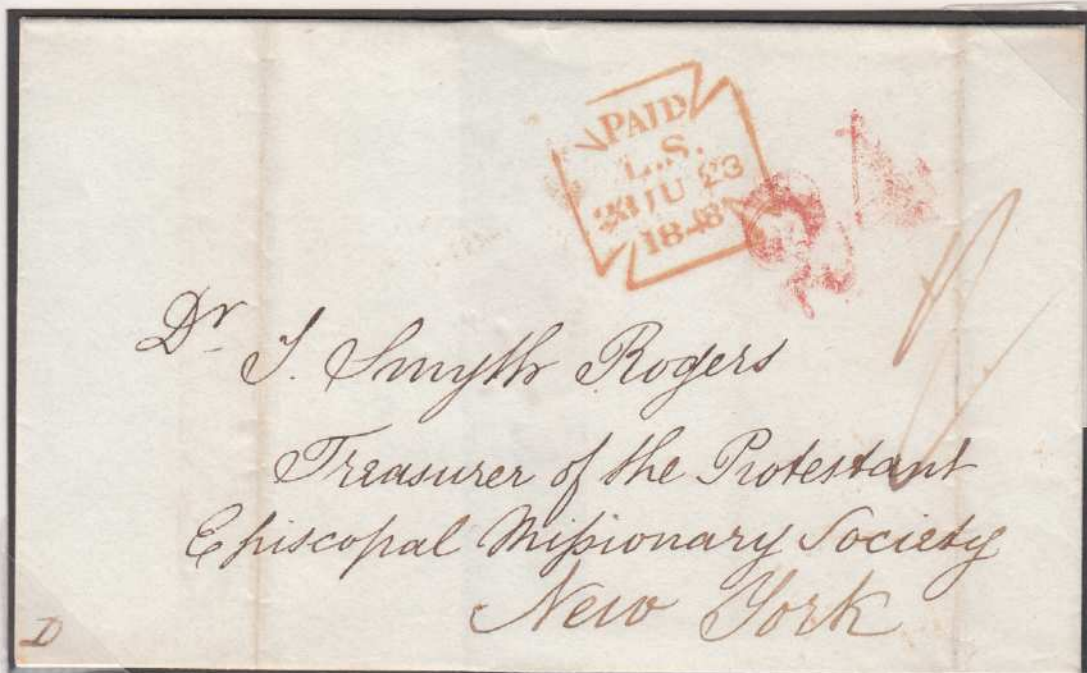 PAID
L.S.
23 JU 23
1848
Dr J. Smyth Rogers
Treasurer of the Protestant
Episcopal Missionary Society
New York
D